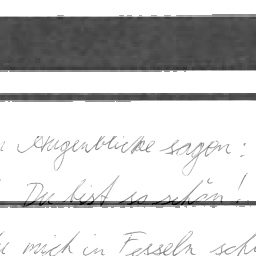 Augenblicke sagen:
Du bist so schön!
mich in Fesseln